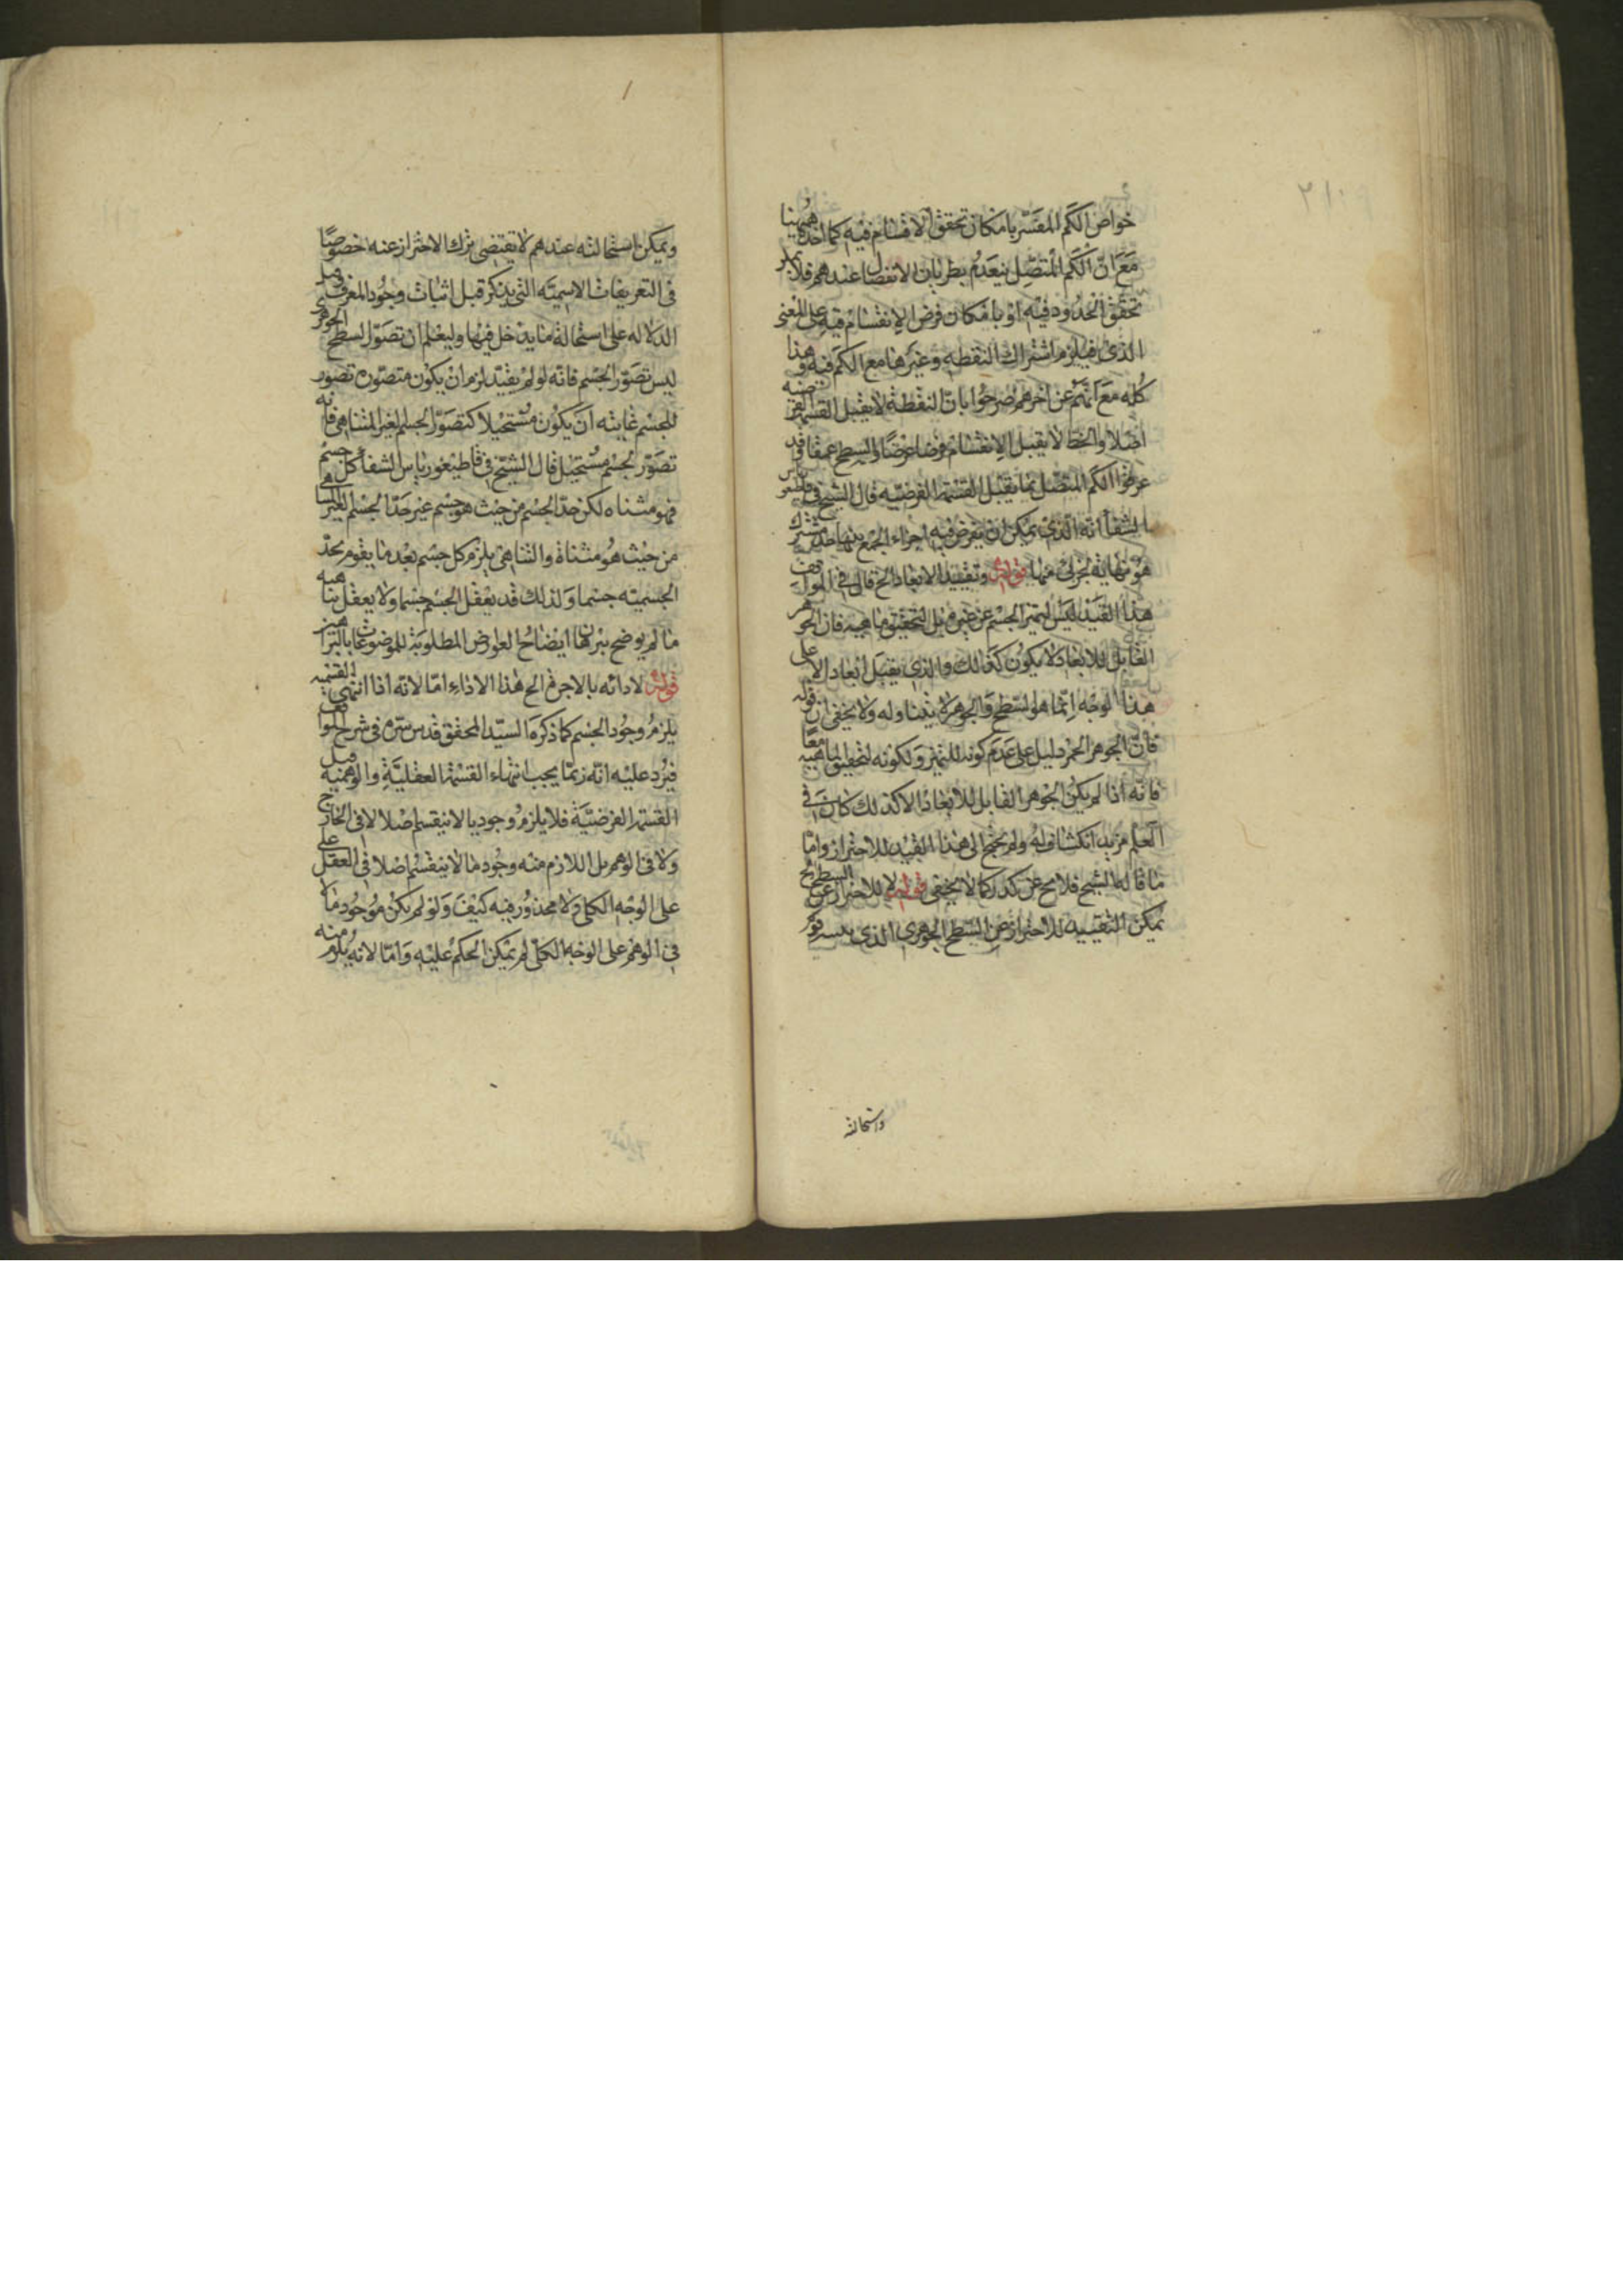 ٢١٠
خواص الكم المفسر بامكان تحقق الاقسام فيه كما اخذه ههنا
مع ان الكم المتصل ينعدم بطريان الانفصال عندهم فلا
تحقق الحدود فيه او بامكان فرض الانقسام فيه على المعنى
الذى فيلزم اشتراك النقطه وغيرها مع الكم فيه وهذا
كله مع انهم عن اخرهم صرحوا بان النقطة لا يقبل القسمة الفرضيه
اصلا والخط لا يقبل الانقسام فرضا عرضا والسطح عمقا وقد
عرفوا الكم المتصل بما يقبل القسمة الفرضيه قال الشيخ فى قاطيغورياس
الشفأ انه الذى يمكن ان يفرض فيه اجزاء الجمع بينها حد مشترك
هو نهاية لجزئى منها قوله وتقييد الابعاد الخ قال فى المواقف
هذا القيد ليس لتميز الجسم عن غيره بل لتحقيق ماهيه فان الجوهر
القابل للابعاد لا يكون كذالك والذى يقبل ابعاد الا على
هذا الوجه انما هو السطح والجوهر لا يتناوله ولا يخفى ان قوله
فان الجوهر الخ دليل على عدم كونه للتميز ولكونه لتحقيق الماهيه معا
فانه اذا لم يكن الجوهر القابل للابعاد الا كذلك كان فى
العلم مزيد انكشاف له ولم يحتج الى هذا القيد للاحتراز واما
ما قاله الشيخ فلا مح عن كدر كما لا يخفى قوله لا للاحتراز عن السطح
يمكن التقييد للاحتراز عن السطح الجوهرى الذى
واستحالته
ويمكن استحالته عندهم لا تقتضى ترك الاحتراز عنه خصوصا
فى التعريفات الاسميته التى يذكر قبل اثبات وجود المعرف قبل
الدلاله على استحالة ما يدخل فيها وليعلم ان تصور السطح الجوهرى
ليس تصور الجسم فانه لو لم يقيد لزم ان يكون متصوره تصور
للجسم غايته ان يكون مستحيلا كتصور الجسم الغير المتناهى فانه
تصور لجسم مستحيل قال الشيخ فى قاطيغورياس الشفأ كل جسم
فهو متناه لكن حد الجسم من حيث هو جسم غير حد الجسم الغير المتناهى
من حيث هو متناه والتناهى يلزم كل جسم بعد ما يقوم بحد
الجسميته جسما ولذلك قد يعقل الجسم جسما ولا يعقل تناهيه
ما لم يوضح ببرهان ايضاح العوارض المطلوبة للموضوعات بالبراهين
قوله لادائه بالاجرة الخ هذا الاداء اما لانه اذا انتهى القسمه
يلزم وجود الجسم كما ذكره السيد المحقق قدس سره فى شرح المواقف
فيرد عليه انه ربما يجب انتهاء القسمة العقلية والوهمية قبل
القسمة الفرضية فلا يلزم وجود ما لا ينقسم اصلا لا فى الخارج
ولا فى الوهم بل اللازم منه وجود ما لا ينقسم اصلا فى العقل على
على الوجه الكلى ولا محذور فيه كيف ولو لم يكن موجود ما لا
فى الوهم على الوجه الكلى لم يمكن الحكم عليه واما لانه يلزم منه